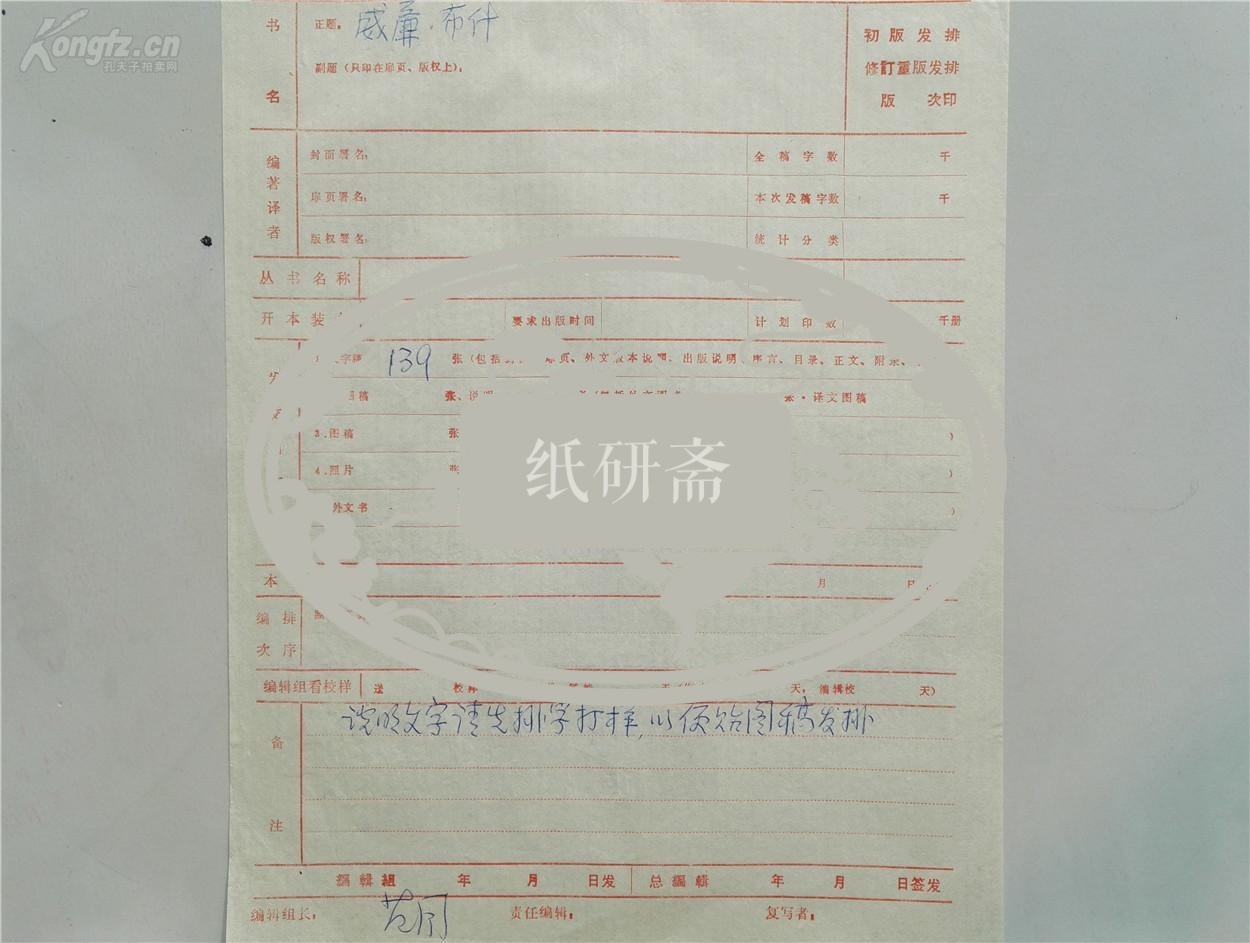 Kongfz.cn
孔夫子拍卖网
书名
正题：威廉·布什
副题（只印在扉页、版权上）：
初版发排
修訂重版发排
版 次印
编著译者
封面署名：
全稿字数 千
扉页署名：
本次发稿字数 千
版权署名：
统计分类
丛书名称
开本装
要求出版时间
计划印数 千册
139 张（包括 外文版本说明、出版说明、序言、目录、正文、附录、
图稿 张、说明 译文图稿
3.图稿 张 ）
4.照片 张 ）
外文书 ）
纸研斋
本 月 日
编排次序
编辑组看校样 送 校样 天，编辑校 天）
备注
说明文字请先排字打样，以便给图稿发排
编辑組 年 月 日发
总编輯 年 月 日签发
编辑组长：
责任编辑：
复写者：